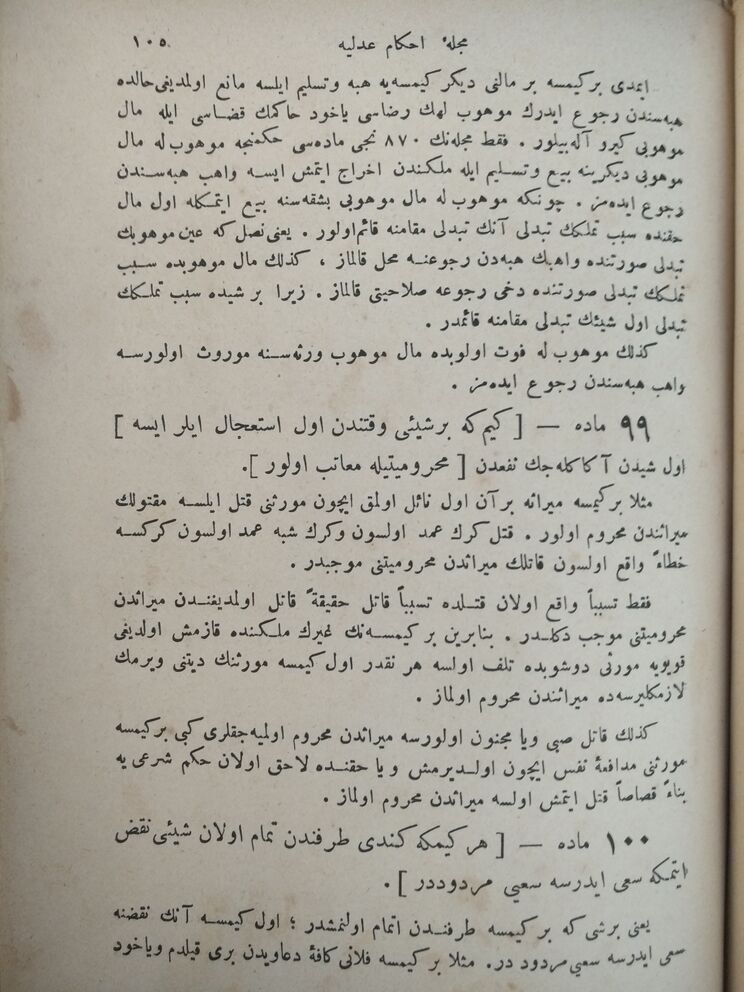 مجلهٔ احكام عدليه ١٠٥
ايمدى بر كيمسه بر مالنى ديكر كيمسه‌يه هبه وتسليم ايلسه مانع اولمديغى حالده
هبه‌سندن رجوع ايدرك موهوب لهك رضاسى ياخود حاكمك قضاسى ايله مال
موهوبى كيرو آله‌بيلور . فقط مجله‌نك ٨٧٠ نجى ماده‌سى حكمنجه موهوب له مال
موهوبى ديكرينه بيع وتسليم ايله ملكندن اخراج ايتمش ايسه واهب هبه‌سندن
رجوع ايده‌مز . چونكه موهوب له مال موهوبى بشقه‌سنه بيع ايتمكله اول مال
حقنده سبب تملكك تبدلى آنك تبدلى مقامنه قائم اولور . يعنى نصل كه عين موهوبك
تبدلى صورتنده واهبك هبه‌دن رجوعنه محل قالماز ، كذلك مال موهوبده سبب
تملكك تبدلى صورتنده دخى رجوعه صلاحيتى قالماز . زيرا بر شيده سبب تملكك
تبدلى اول شيئك تبدلى مقامنه قائمدر .
كذلك موهوب له فوت اولوبده مال موهوب ورثه‌سنه موروث اولورسه
واهب هبه‌سندن رجوع ايده‌مز .
٩٩ ماده — [ كيم كه بر شيئى وقتندن اول استعجال ايلر ايسه ]
اول شيدن آكا كله‌جك نفعدن [ محروميتيله معاتب اولور ].
مثلا بر كيمسه ميراثه بر آن اول نائل اولمق ايچون مورثنى قتل ايلسه مقتولك
ميراثندن محروم اولور . قتل كرك عمد اولسون وكرك شبه عمد اولسون كركسه
خطاءً واقع اولسون قاتلك ميراثدن محروميتنى موجبدر .
فقط تسبباً واقع اولان قتلده تسبباً قاتل حقيقةً قاتل اولمديغندن ميراثدن
محروميتنى موجب دكلدر . بنابرين بر كيمسه‌نك غيرك ملكنده قازمش اولديغى
قويويه مورثى دوشوبده تلف اولسه هر نقدر اول كيمسه مورثنك ديتنى ويرمك
لازمكليرسه‌ده ميراثندن محروم اولماز .
كذلك قاتل صبى ويا مجنون اولورسه ميراثدن محروم اولميه‌جقلرى كبى بر كيمسه
مورثنى مدافعهٔ نفس ايچون اولديرمش ويا حقنده لاحق اولان حكم شرعى يه
بناءً قصاصاً قتل ايتمش اولسه ميراثدن محروم اولماز .
١٠٠ ماده — [ هر كيمكه كندى طرفندن تمام اولان شيئى نقض
ايتمكه سعى ايدرسه سعيى مردوددر ] .
يعنى برشى كه بر كيمسه طرفندن اتمام اولنمشدر ؛ اول كيمسه آنك نقضنه
سعى ايدرسه سعيى مردود در. مثلا بر كيمسه فلانى كافهٔ دعاويدن برى قيلدم وياخود